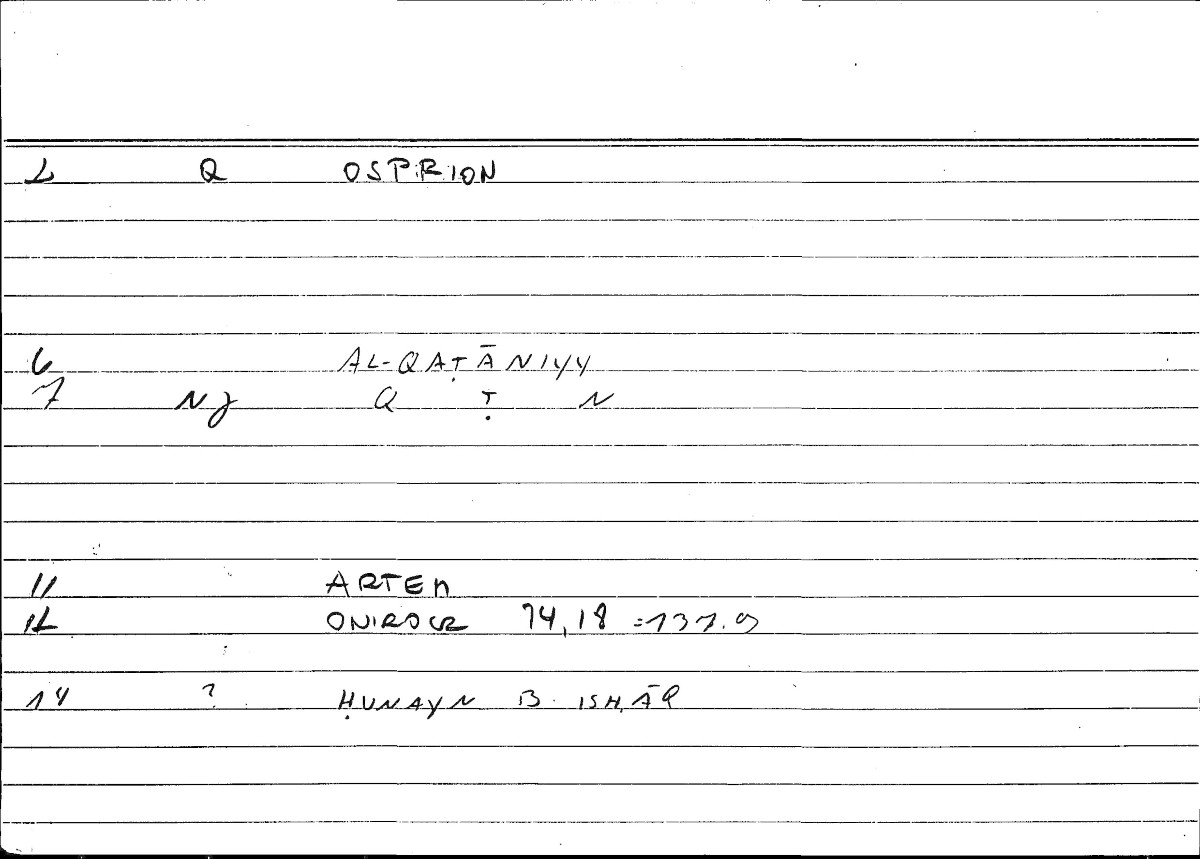 2 Q OSPRION
6 AL-QAṬĀNIYY
7 NJ Q Ṭ N
11 ARTEM
12 ONIROCR 74,18 =131.9
14 ? ḤUNAYN B. ISḤĀQ